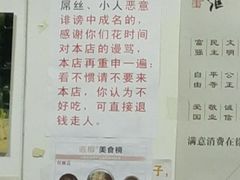 屌丝、小人恶意
诽谤中成名的，
感谢你们花时间
对本店的谩骂，
本店再重申一遍：
看不惯请不要来
本店，你认为不
好吃，可直接退
钱走人。
美食榜
子
富强 民主 文明
自由 平等 公正
爱国 敬业 诚信
满意消费在你